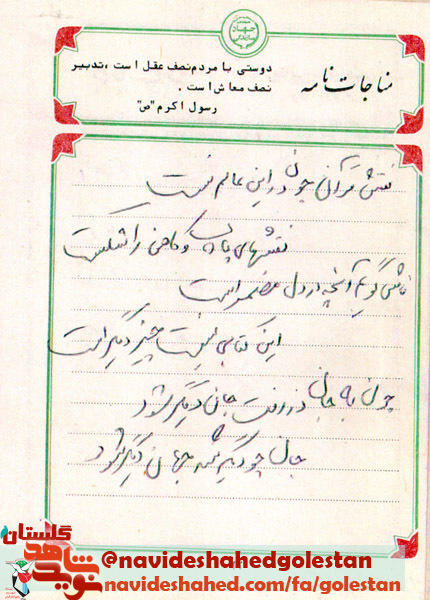 جهاد سازندگی
مناجات نامه
دوستی با مردم نصف عقل است ، تدبیر
نصف معاش است .
رسول اکرم "ص"
نقش قرآن چون در این عالم نشست
نقشهای پاپ و کاهن را شکست
فاش گویم آنچه در دل مضمر است
این کتابی نیست چیز دیگر است
چون به جان در رفت جان دیگر شود
جان چو دیگر شد جهان دیگر شود
گلستان
نوید شاهد
@navideshahedgolestan
navideshahed.com/fa/golestan